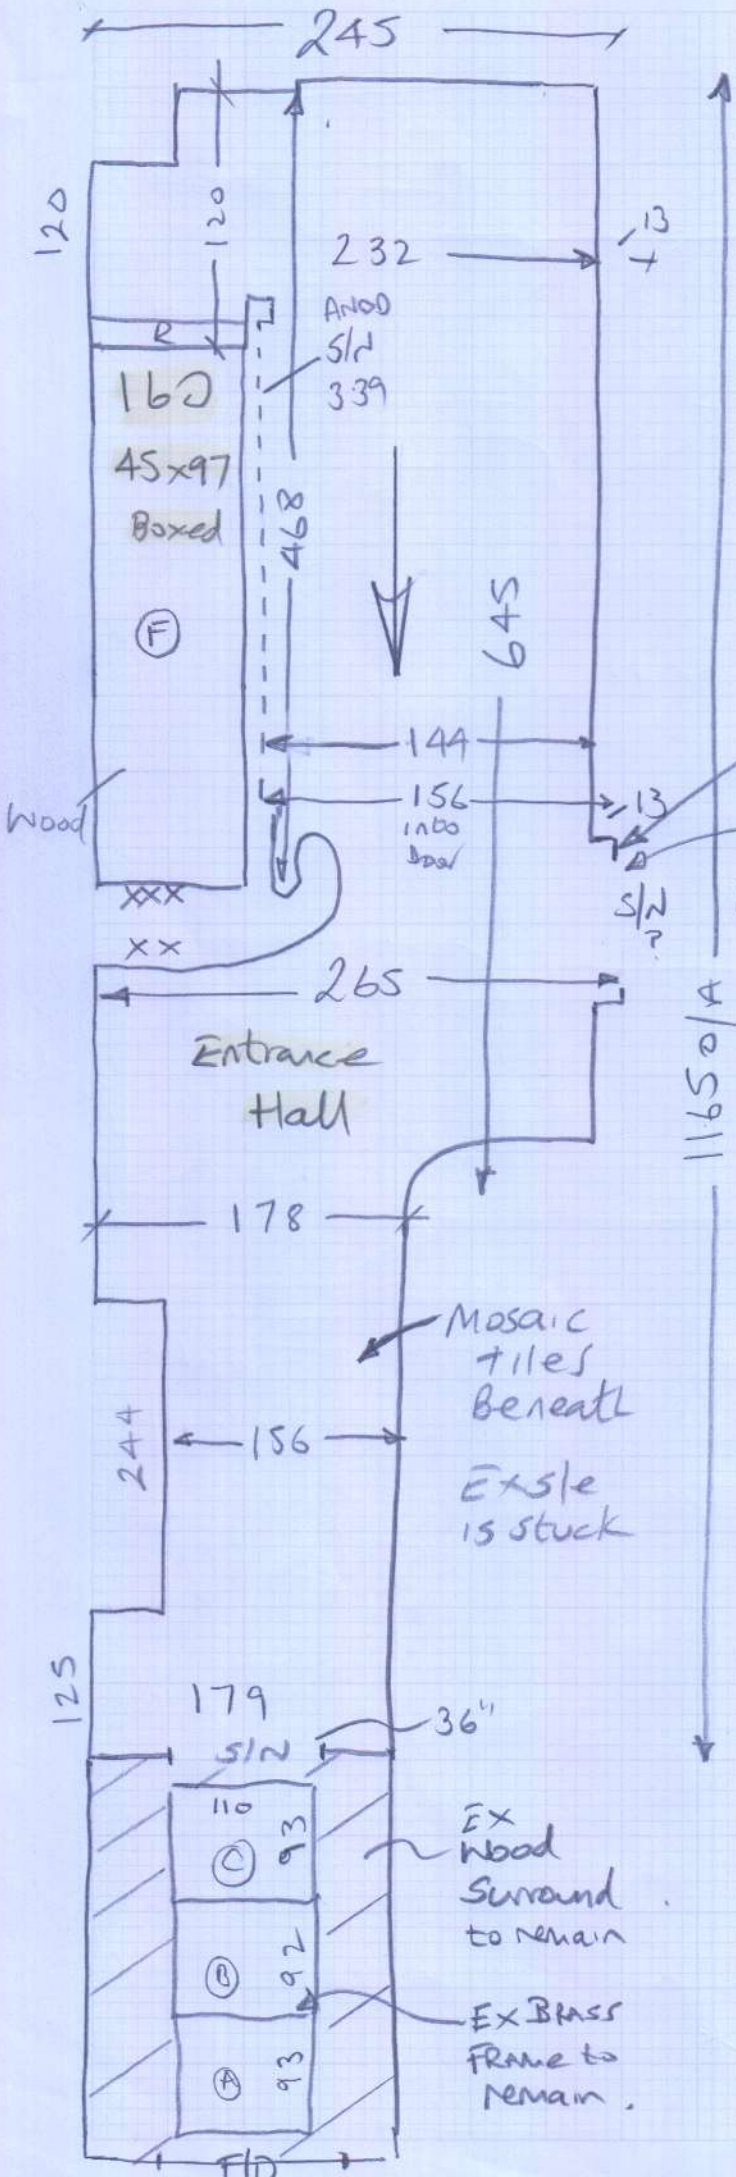 245
120
120
232
13
ANOD
S/N
339
R
160
45x97
Boxed
F
468
645
144
156
into
Door
13
Wood
XXX
XX
S/N
?
265
Entrance
Hall
1165 O/A
178
Mosaic
tiles
Beneath
244
156
Ex s/e
is stuck
125
179
S/N
36"
110
C
93
EX
Wood
Surround
to remain
B
92
EX BRASS
FRAME to
remain.
A
93
F/D